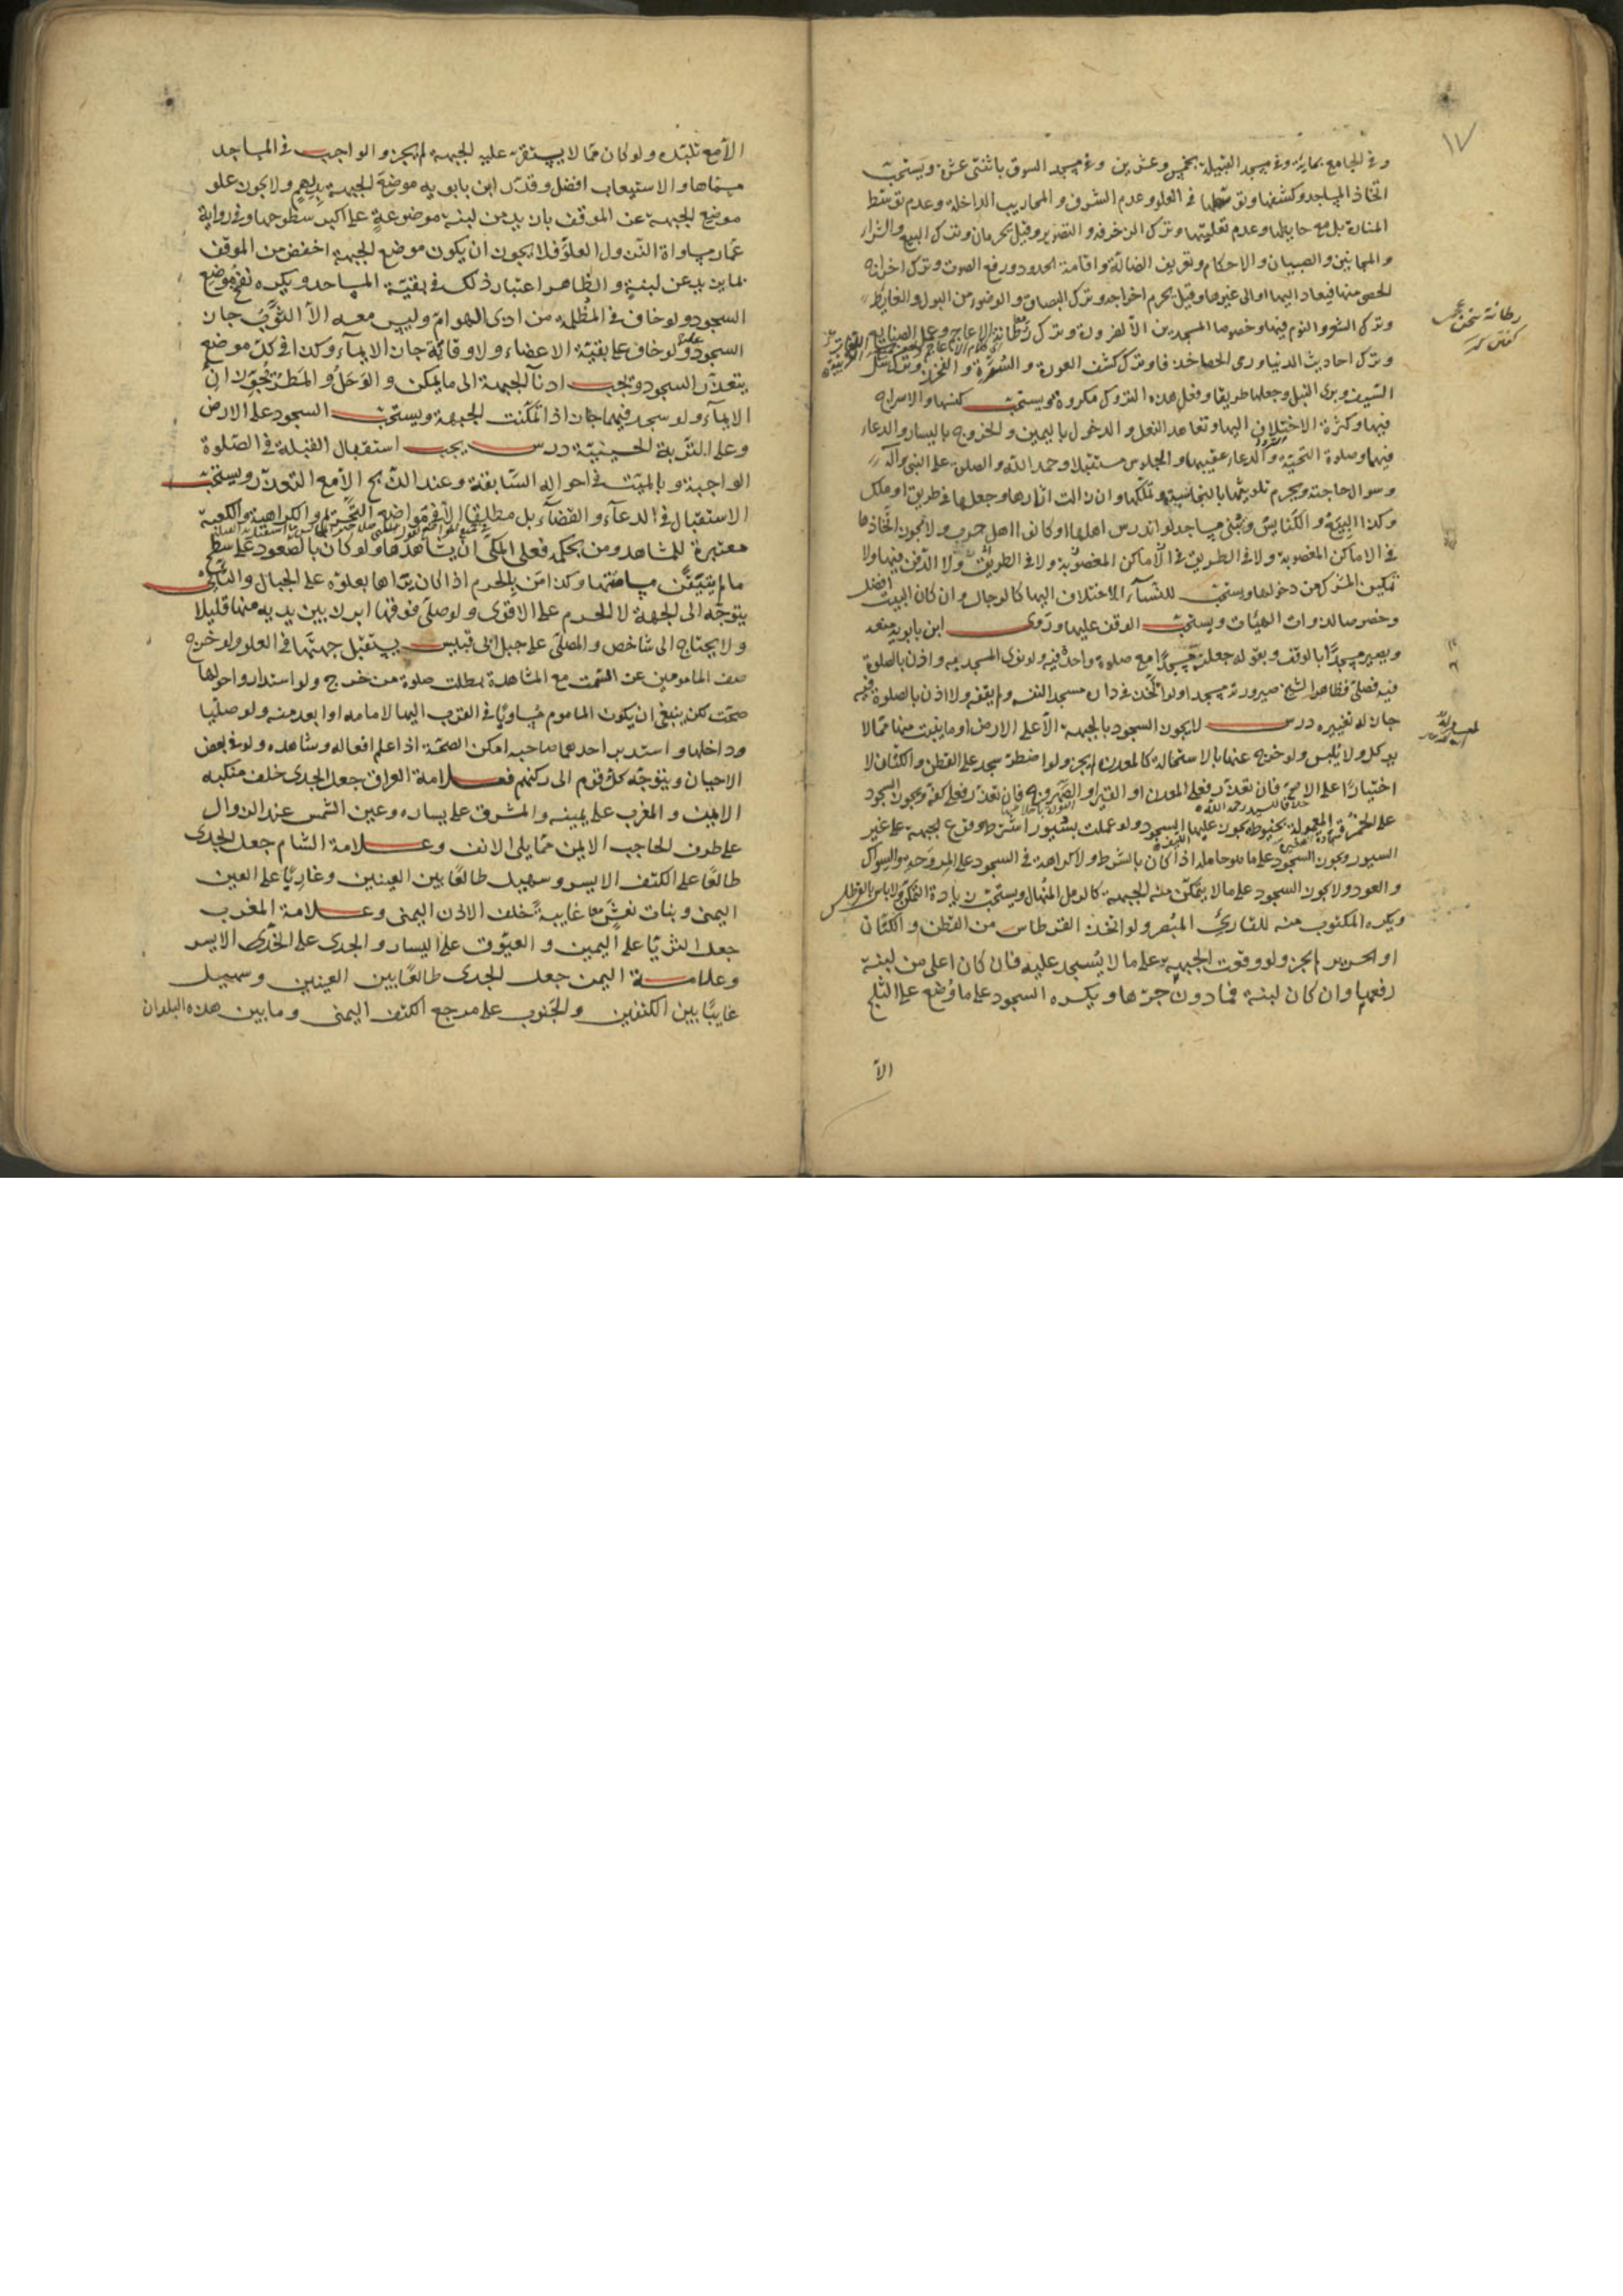 ١٧
وفي الجامع بمائة وفي مسجد القبيلة بخمس وعشرين وفي مسجد السوق باثنتى عشرة ويستحب
اتخاذ المساجد وكشفها وتوسطها في العلو وعدم الشرف والمحاريب الداخلة وعدم توسّط
المنارة بل مع حايطها وعدم تعليتها وترك الزخرفه والتصوير وقيل يحرمان وترك البيع والشراء
والمجانين والصبيان والاحكام وتعريف الضالّة واقامة الحدود ورفع الصوت وترك اخراج
الحصى منها فيعاد اليها او الى غيرها وقيل يحرم اخراجه وترك البصاق والوضوء من البول والغايط
وترك الشعر والنوم فيها وخصوصا المسجدين الاّ لضرورة وترك رطانة الاعاجم وعمل الصنايع
وترك احاديث الدنيا ورمى الحصا خذفا وترك كشف العورة والسّرّة والفخذ وترك سلّ
السّيف وبرى النبل وجعلها طريقا وفعل هذه التروك مكروه ويستحب كنسها والاسراج
فيها وكثرة الاختلاف اليها وتعاهد النعل والدخول باليمين والخروج باليسار والدعاء
فيهما وصلوة التحيّة والدعاء عقيبها والجلوس مستقبلا وحمد الله والصلوة على النبي وآله
وسؤال حاجته ويحرم تلويثها بالنجاسة وتملّكها وان زالت اثارها وجعلها في طريق او ملك
وكذا البِيَع والكنايس ويبنى مساجد لو اندرس اهلها او كانوا اهل حرب ولا يجوز اتخاذها
في الاماكن المغصوبة ولا في الطريق ولا الدّفن فيها ولا
تمكين المشرك من دخولها ويستحب للنّساء الاختلاف اليها كالرجال وان كان البيت افضل
وخصوصا لذوات الهيئات ويستحبّ الوقف عليها وروى ابن بابويه منعه
ويصير مسجدًا بالوقف وبقوله جعلته مسجدًا مع صلوة واحدة فيه ولو نوى المسجديه واذن بالصلوة
فيه فصلّى فظاهر الشيخ صيرورته مسجد اولو اتّخذ في داره مسجدا لنفسه ولم يقفه ولا اذن بالصلوة فيه
جاز له تغييره درس لا يجوز السجود بالجبهة الاّ على الارض او ما ينبت منها ممّا لا
يوكل ولا يُلبس ولو خرج عنها بالاستحالة كالمعدن لم يجز ولو اضطرّ سجد على القطن والكتان لا
اختيارًا على الاصحّ فان تعذّر فعلى المعدن او القير او الصهروج فان تعذّر فعلى كفّه ويجوز السجود
على الخمرة المعمولة بخيوط يجوز عليها السجود ولو عملت بسُيور اشترط وقوع الجبهة على غير
السيور ويجوز السجود على ما هو حامله اذا كان بالشرط ولا كراهة في السجود على المروحة والسواك
والعود ولا يجوز السجود على ما لا يتمكّن منه الجبهة كالرمل المنهال ويستحب زيادة التمكّن ولا باس بالقرطاس
ويكره المكتوب منه للقارئ المبُصر ولو اتّخذ القرطاس من القطن والكتّان
او الحرير لم يجز ولو وقعت الجبهة على ما لا يُسجد عليه فان كان اعلى من لبنة
رفعها وان كان لبنة فما دون جرّها ويكره السجود على ما وُضع على الثلج
الاّ
الاّ مع تلبّده ولو كان ممّا لا يستقرّ عليه الجبهة لم يجز والواجب في المساجد
مسمّاها والاستيعاب افضل وقدّر ابن بابويه موضع الجبهة بدرهمٍ ولا يجوز علو
موضع الجبهة عن الموقف بازيد من لبنة موضوعةٍ على اكبر سطوحها وفي رواية
عمّار مساواة النّزول العلوّ فلا يجوز ان يكون موضع الجبهة اخفض من الموقف
بما يزيد عن لبنةٍ والظاهر اعتبار ذلك في بقيّة المساجد ويكره نفخ موضع
السجود ولو خاف في المظلمة من اذى الهوامّ وليس معه الاّ الثّوب جاز
السجود عليه ولو خاف على بقيّة الاعضاء ولا وقاية جاز الايماء وكذا في كلّ موضع
يتعذّر السجود ويجب ادناء الجبهة الى ما يمكن والوَحَل والمَطر يُجوّزان
الايماء ولو سجد فيهما جاز اذا تمكّنت الجبهة ويستحبّ السجود على الارض
وعلى التربة الحسينيّة درس يجب استقبال القبلة في الصّلوة
الواجبة وبالميّت في احواله السّابقة وعند الذّبح الاّ مع التعذّر ويستحبّ
الاستقبال في الدعاء والقضاء بل مطلقا الاّ في مواضع التّحريم والكراهية والكعبة
معتبرة للمشاهد ومن بحكمه فعلى المكّى ان يشاهدها ولو كان بالصّعود على سطح
ما لم يتيقّن مسامتتها وكذا من بالحرم اذا كان يراها بعلوّه على الجبال والنائى
يتوجّه الى الجهة لا الحرم على الاقوى ولو صلّى فوقها ابرز بين يديه منها قليلا
ولا يحتاج الى شاخص والمصلّى على جبل ابى قبيس يستقبل جهتها في العلو ولو خرج
صف المامومين عن السّمت مع المشاهدة بطلت صلوة من خرج ولو استداروا حولها
صحّت لكن ينبغى ان يكون الماموم مساويًا في القرب اليها لامامه او ابعد منه ولو صليّا
وداخلها واستدبر احدهما صاحبه امكن الصحّة اذا علم افعاله وشاهده ولو في بعض
الاحيان ويتوجّه كل قوم الى ركنهم فعلامة العراق جعل الجدى خلف منكبه
الايمن والمغرب على يمينه والمشرق على يساره وعين الشمس عند الزوال
على طرف الحاجب الايمن ممّا يلى الانف وعلامة الشام جعل الجدى
طالعًا على الكتف الايسر وسهيل طالعًا بين العينين وغاربًا على العين
اليمنى وبنات نعشٍ معا غايبة خلف الاذن اليمنى وعلامة المغرب
جعل الثريّا على اليمين والعيّوق على اليسار والجدى على الخدّ الايسر
وعلامة اليمن جعل الجدى طالعًا بين العينين وسهيل
غايبًا بين الكتفين والجَنوب على مرجع الكتف اليمنى وما بين هذه البلدان